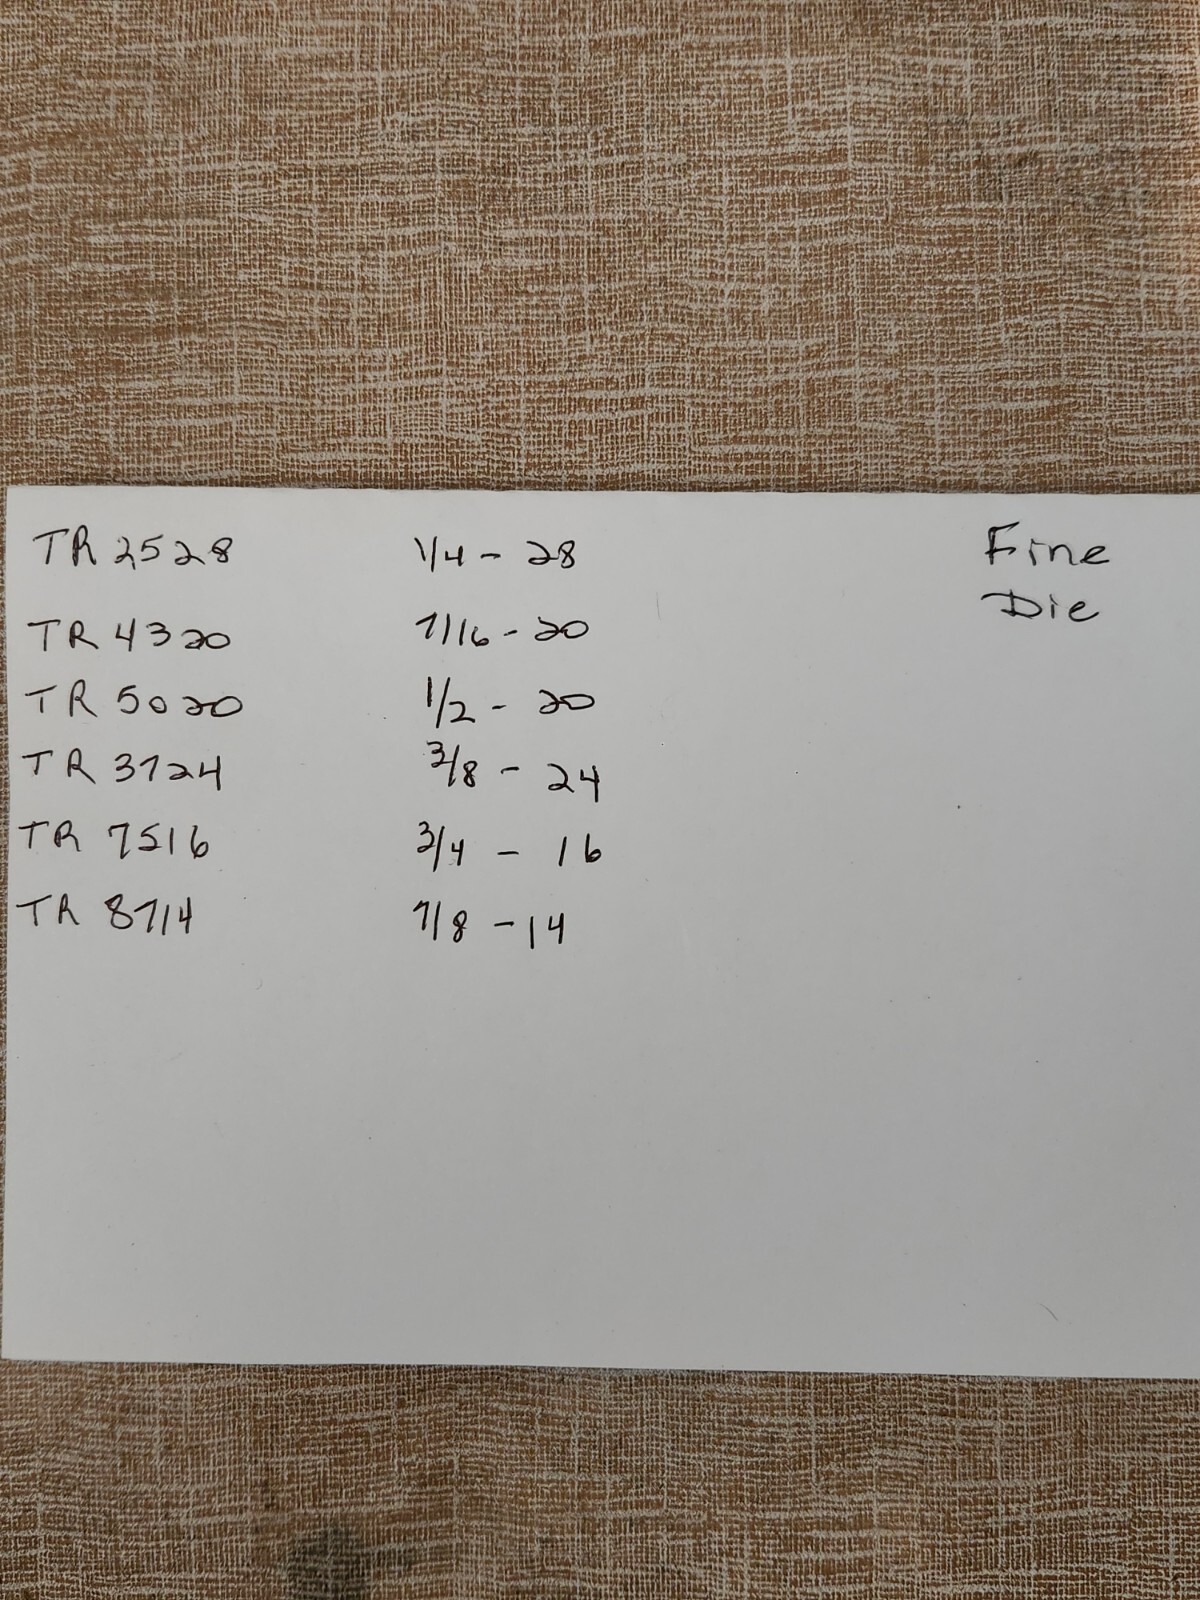 TR 2528 1/4 - 28 Fine
Die
TR 4320 7/16 - 20
TR 5020 1/2 - 20
TR 3724 3/8 - 24
TR 7516 3/4 - 16
TR 8714 7/8 - 14